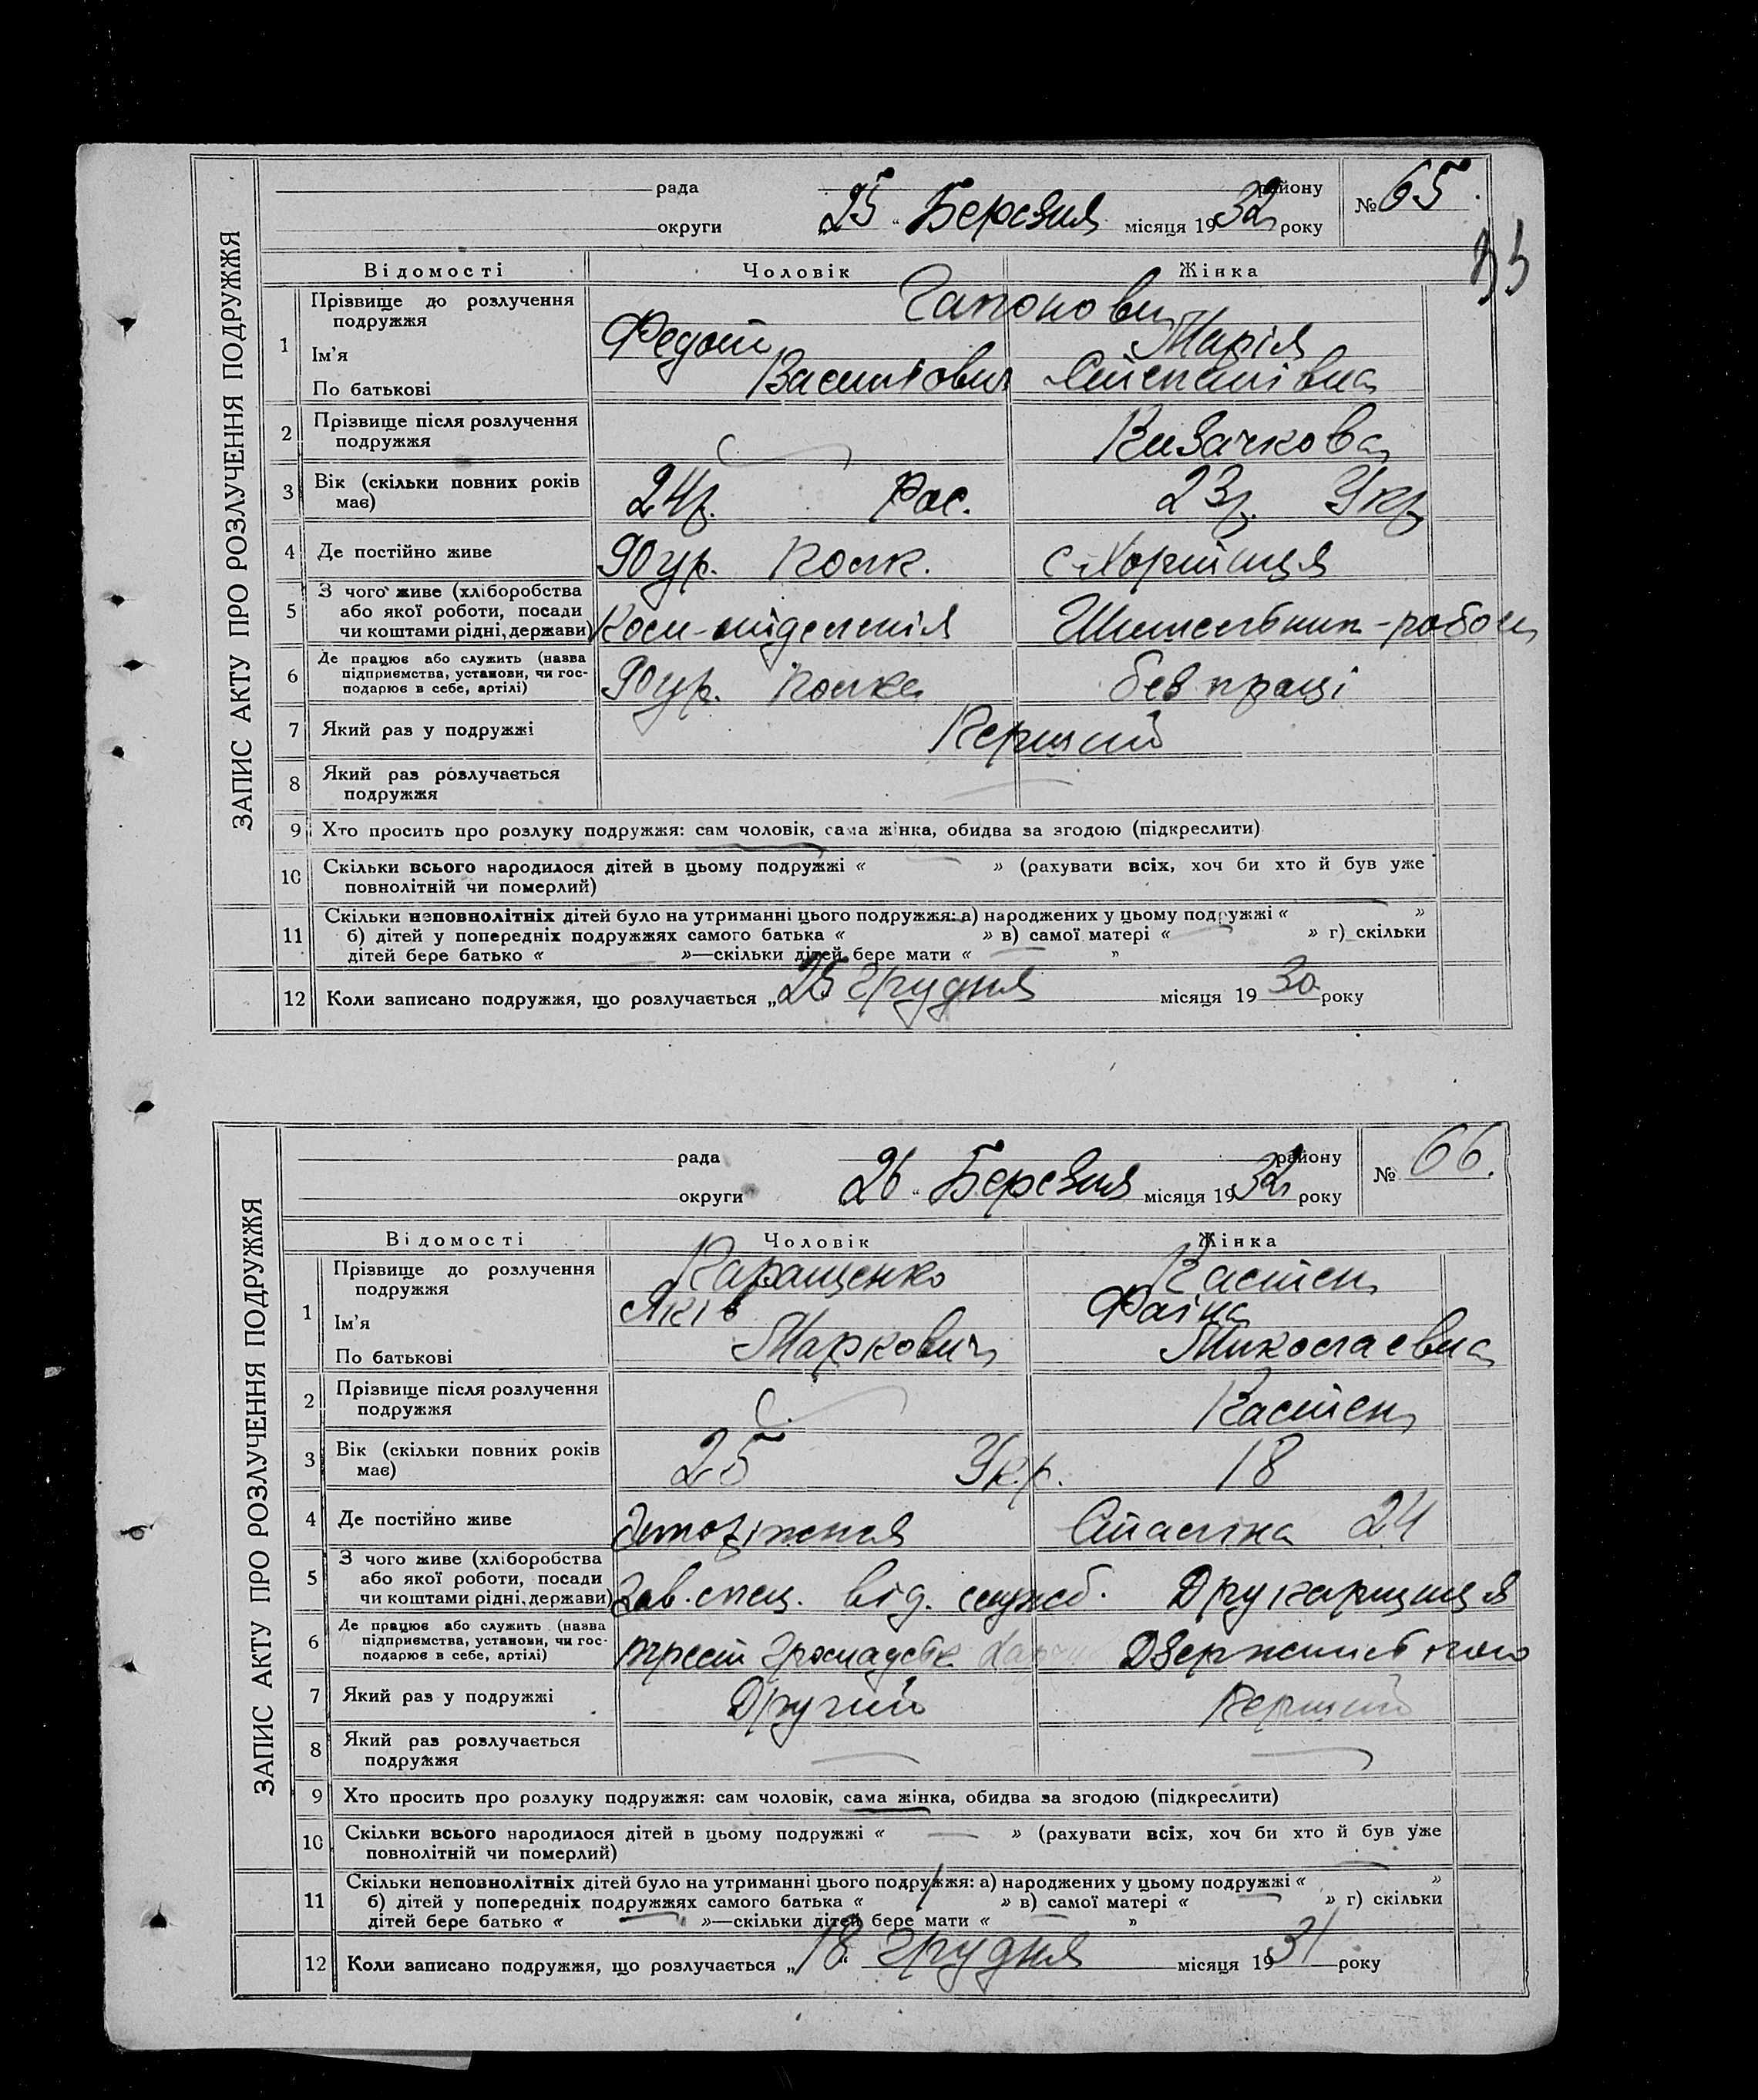 ЗАПИС АКТУ ПРО РОЗЛУЧЕННЯ ПОДРУЖЖЯ
рада району № 65.
округи „25“ Березня місяця 1932 року
Відомості Чоловік Жінка
1 Прізвище до розлучення подружжя
Ім'я Федот Марія
По батькові Степанівна
2 Прізвище після розлучення подружжя
3 Вік (скільки повних років має) 24р. Рос. 23р. Укр
4 Де постійно живе 90 ур. Полк. с Хортиця
5 З чого живе (хліборобства або якої роботи, посади чи коштами рідні, держави)
6 Де працює або служить (назва підприємства, установи, чи господарює в себе, артілі) 90 ур. Полка без праці
7 Який раз у подружжі Перший
8 Який раз розлучається подружжя
9 Хто просить про розлуку подружжя: сам чоловік, сама жінка, обидва за згодою (підкреслити)
10 Скільки всього народилося дітей в цьому подружжі « — » (рахувати всіх, хоч би хто й був уже
повнолітній чи померлий)
11 Скільки неповнолітніх дітей було на утриманні цього подружжя: а) народжених у цьому подружжі « — »
б) дітей у попередніх подружжях самого батька « » в) самої матері « — » г) скільки
дітей бере батько « — »—скільки дітей бере мати « — »
12 Коли записано подружжя, що розлучається „25 Грудня місяця 1930 року
ЗАПИС АКТУ ПРО РОЗЛУЧЕННЯ ПОДРУЖЖЯ
рада району № 66.
округи 26 “ Березня місяця 1932 року
Відомості Чоловік Жінка
1 Прізвище до розлучення подружжя Каращенко Кастен
Ім'я Яків Фаїна
По батькові Маркович Миколаевна
2 Прізвище після розлучення подружжя Кастен
3 Вік (скільки повних років має) 25 Укр. 18
4 Де постійно живе Запоріжжя Сталіна 24
5 З чого живе (хліборобства або якої роботи, посади чи коштами рідні, держави) Зав. спец. від. служб. Друкарщиця
6 Де працює або служить (назва підприємства, установи, чи господарює в себе, артілі) трест
7 Який раз у подружжі Другий Перший
8 Який раз розлучається подружжя — —
9 Хто просить про розлуку подружжя: сам чоловік, сама жінка, обидва за згодою (підкреслити)
10 Скільки всього народилося дітей в цьому подружжі « — » (рахувати всіх, хоч би хто й був уже
повнолітній чи померлий)
11 Скільки неповнолітніх дітей було на утриманні цього подружжя: а) народжених у цьому подружжі « — »
б) дітей у попередніх подружжях самого батька « » в) самої матері « — » г) скільки
дітей бере батько « — »—скільки дітей бере мати « — »
12 Коли записано подружжя, що розлучається „18“ Грудня місяця 1931 року